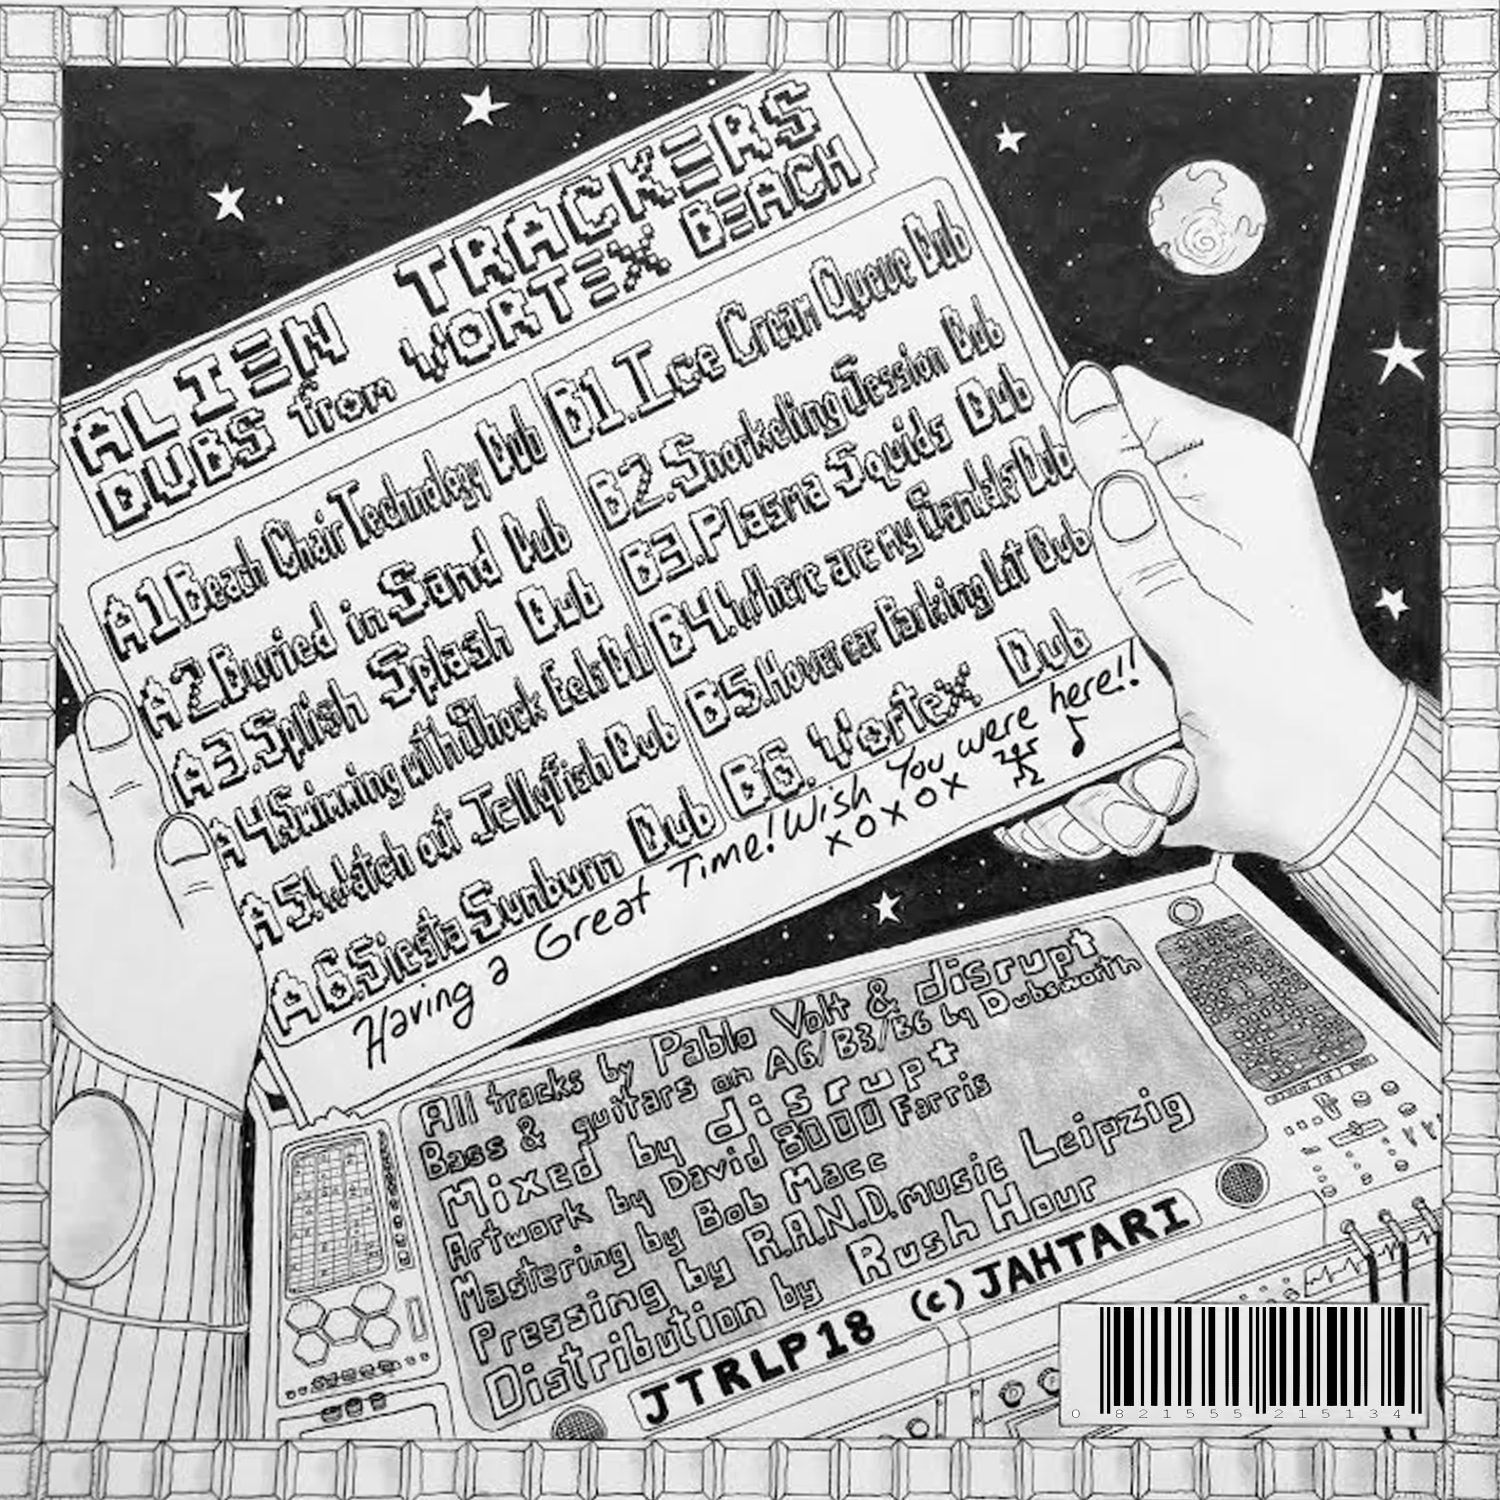 ALIEN TRACKERS
DUBS from VORTEX BEACH
A1.Beach Chair Technology Dub
A2.Buried in Sand Dub
A3.Splish Splash Dub
A4.Swimming with Shock Eels Dub
A5.Watch out Jellyfish Dub
A6.Siesta Sunburn Dub
B1.Ice Cream Queue Dub
B2.Snorkeling Session Dub
B3.Plasma Squids Dub
B4.Where are my Sandals Dub
B5.Hovercar Parking Lot Dub
B6.Vortex Dub
Having a Great Time! Wish You were here!!
xoxox
All tracks by Pablo Volt & disrupt
Bass & guitars on A6/B3/B6 by Dubsworth
Mixed by disrupt
Artwork by David 8000 Farris
Mastering by Bob Macc
Pressing by R.A.N.D.music Leipzig
Distribution by Rush Hour
JTRLP18 (c) JAHTARI
0 821555 215134